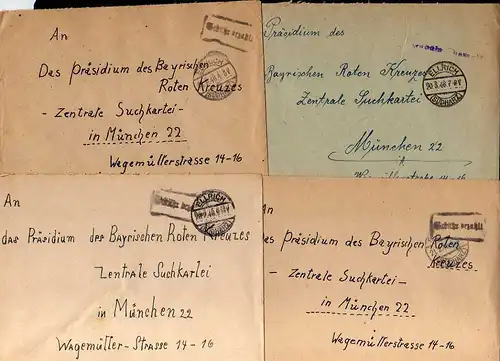 An
Das Präsidium des Bayrischen
Roten Kreuzes
- Zentrale Suchkartei -
in München 22
Wagemüllerstrasse 14-16
Gebühr bezahlt
Präsidium des
Bayrischen Roten Kreuzes
Zentrale Suchkartei
München 22
ELLRICH
20.3.46
(SÜDHARZ)
An
das Präsidium des Bayrischen Roten Kreuzes
Zentrale Suchkartei
in München 22
Wagemüller-Strasse 14-16
ELLRICH
An
das Präsidium des Bayrischen Roten
Kreuzes
- Zentrale Suchkartei -
in München 22
Wagemüllerstrasse 14-16
Gebühr bezahlt